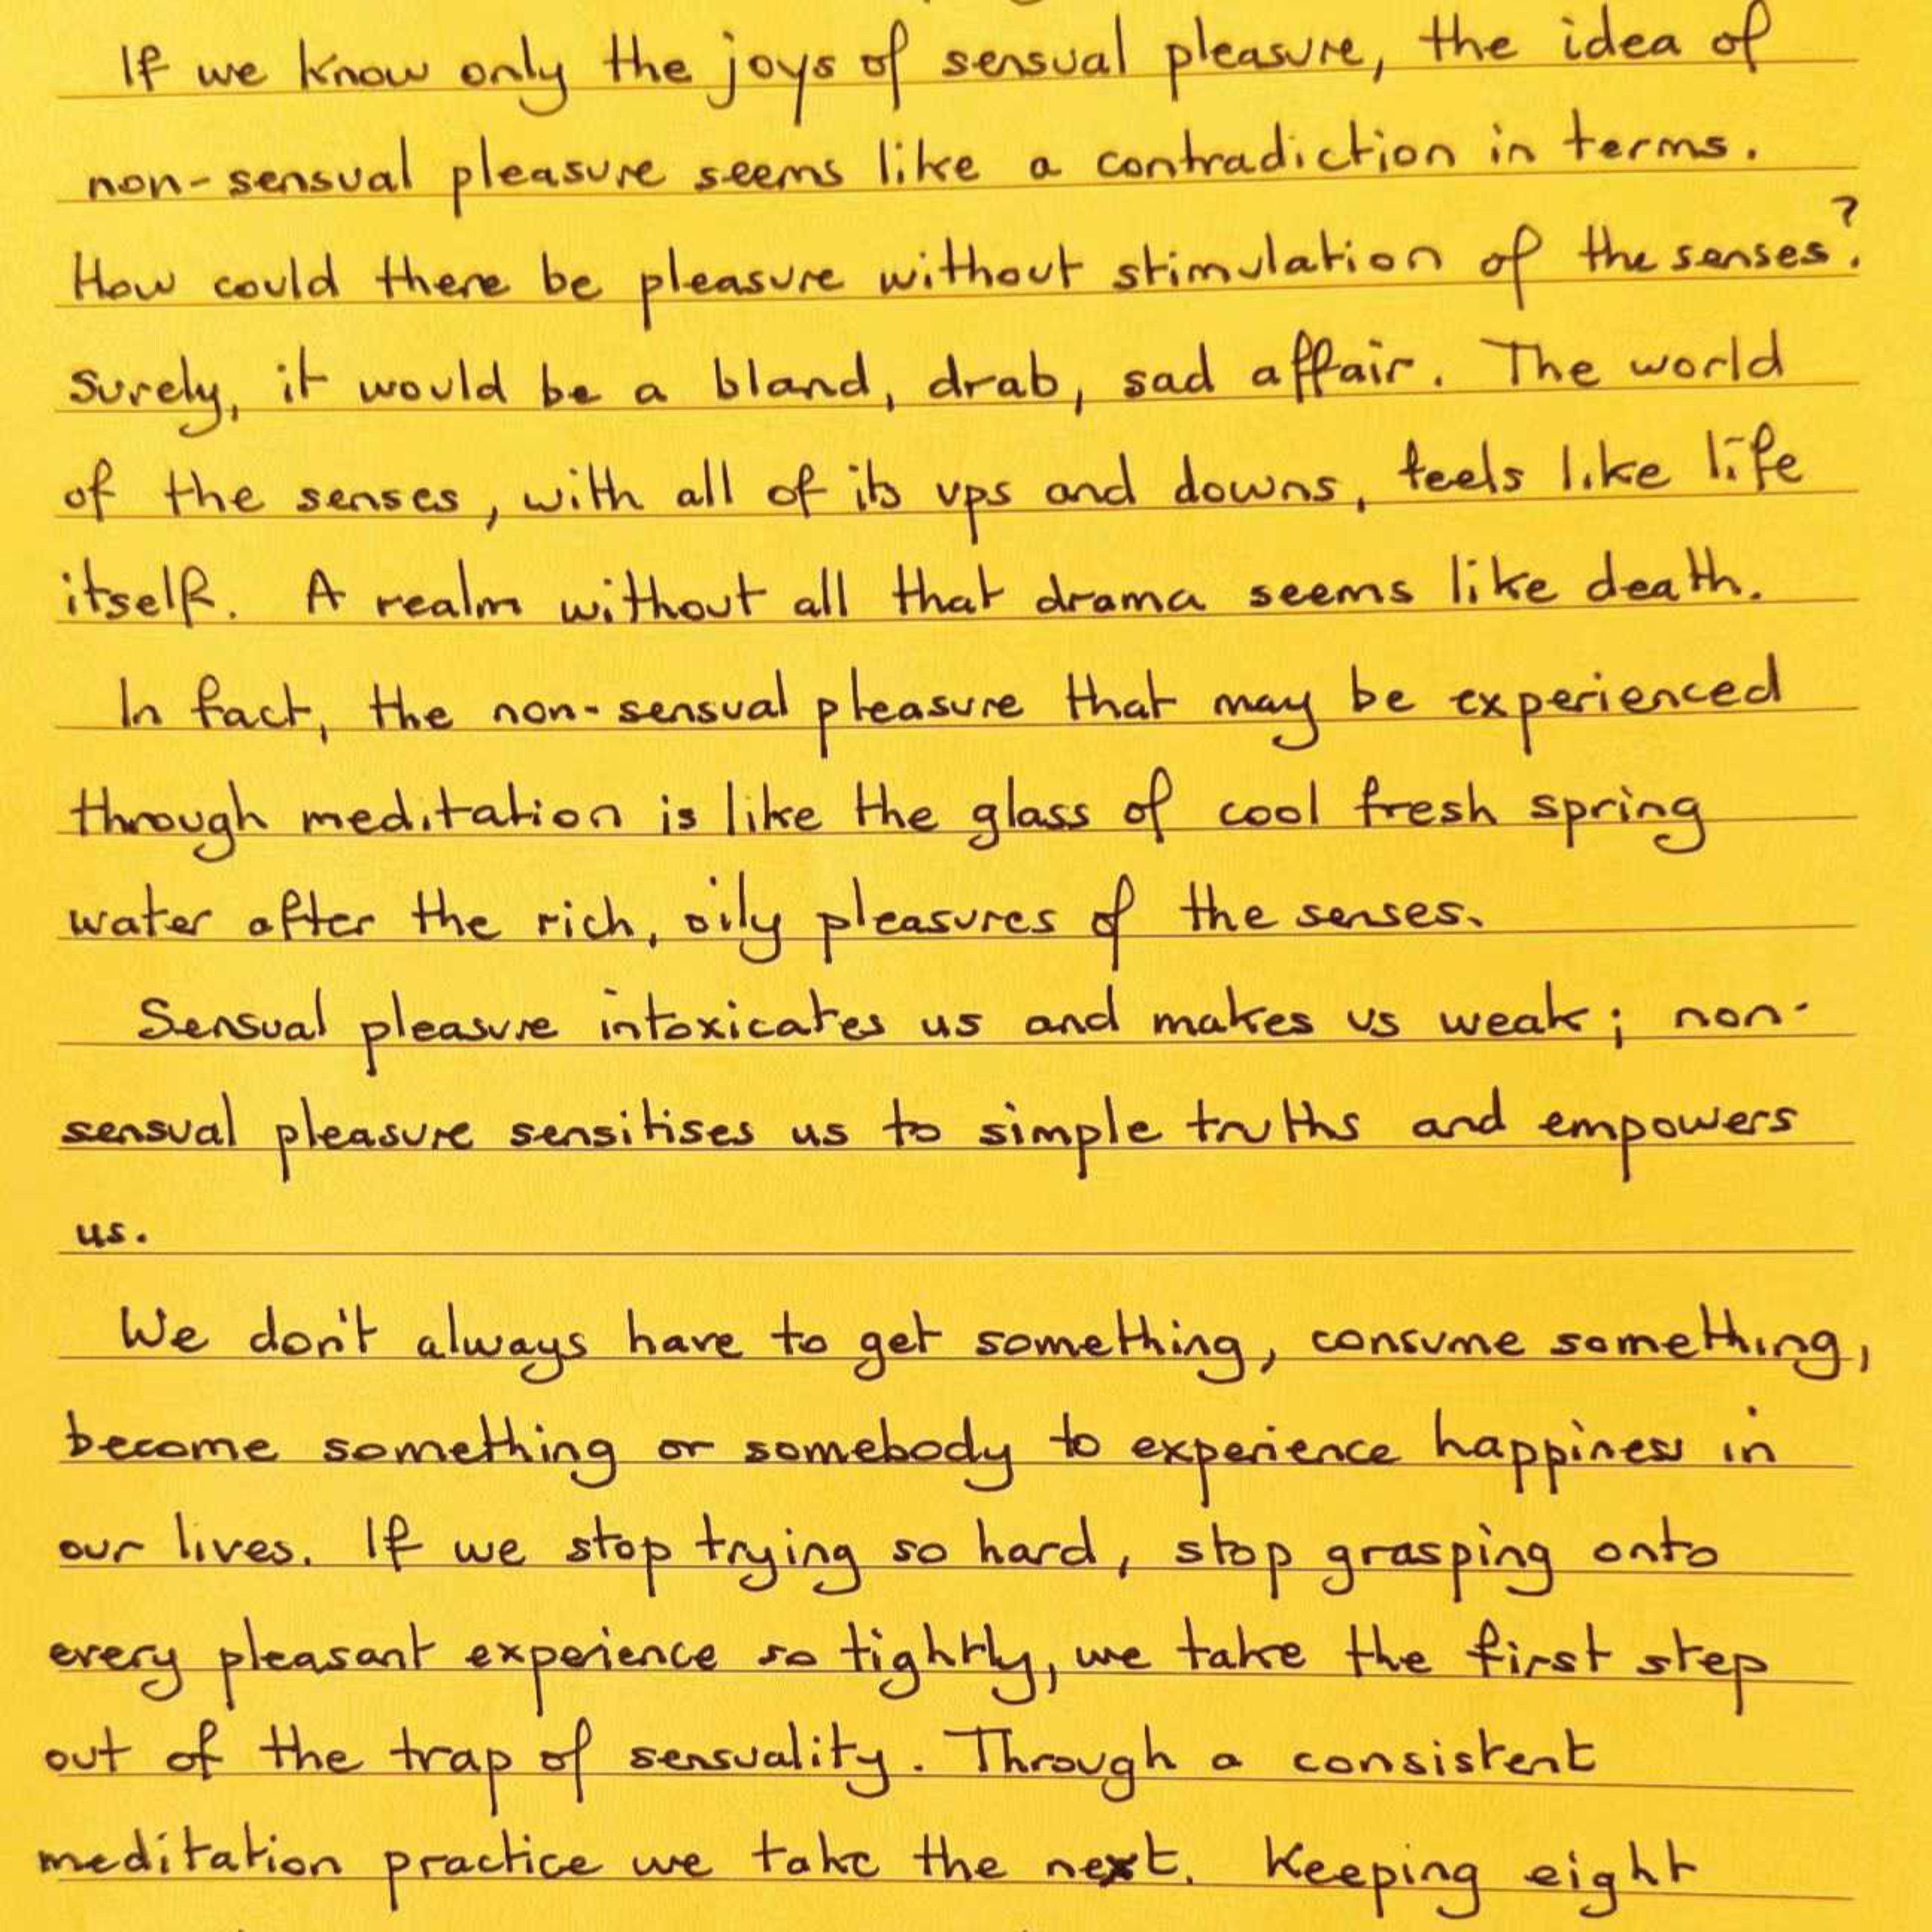 If we know only the joys of sensual pleasure, the idea of
non-sensual pleasure seems like a contradiction in terms.
How could there be pleasure without stimulation of the senses?
Surely, it would be a bland, drab, sad affair. The world
of the senses, with all of its ups and downs, feels like life
itself. A realm without all that drama seems like death.
In fact, the non-sensual pleasure that may be experienced
through meditation is like the glass of cool fresh spring
water after the rich, oily pleasures of the senses.
Sensual pleasure intoxicates us and makes us weak; non-
sensual pleasure sensitises us to simple truths and empowers
us.
We don't always have to get something, consume something,
become something or somebody to experience happiness in
our lives. If we stop trying so hard, stop grasping onto
every pleasant experience so tightly, we take the first step
out of the trap of sensuality. Through a consistent
meditation practice we take the next. Keeping eight